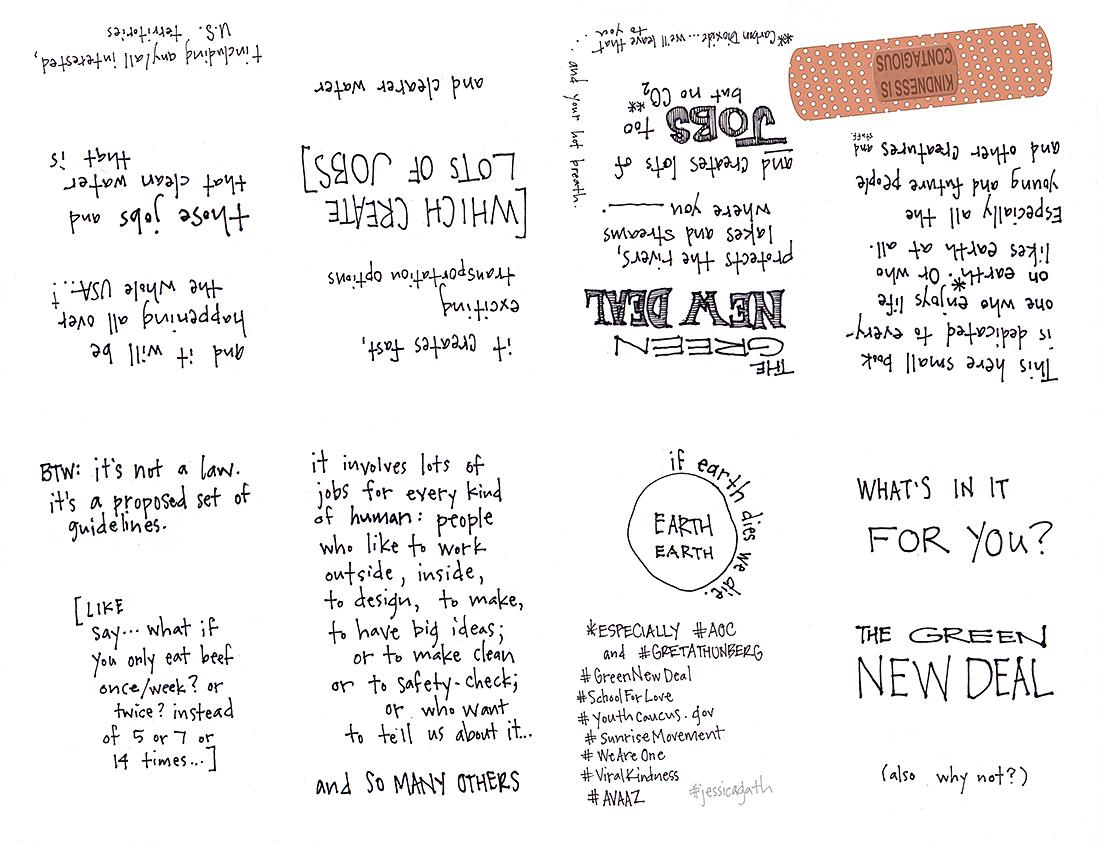 WHAT'S IN IT
FOR YOU?
THE GREEN
NEW DEAL
(also why not?)
This here small book
is dedicated to every-
one who enjoys life
on earth.* Or who
likes earth at all.
Especially all the
young and future people
and other creatures and stuff.
KINDNESS IS
CONTAGIOUS
THE
GREEN
NEW DEAL
protects the rivers,
lakes and streams
where you ———.
and creates lots of
JOBS too
but no CO2**
**Carbon Dioxide...we'll leave that
to you...
and your hot breath.
it creates fast,
exciting
transportation options
[WHICH CREATE
LOTS OF JOBS]
and clearer water
and it will be
happening all over
the whole USA...!†
those jobs and
that clean water
that is
†including any/all interested,
U.S. territories
BTW: it's not a law.
it's a proposed set of
guidelines.
[LIKE
say... what if
you only eat beef
once/week? or
twice? instead
of 5 or 7 or
14 times...]
it involves lots of
jobs for every kind
of human: people
who like to work
outside, inside,
to design, to make,
to have big ideas;
or to make clean
or to safety-check;
or who want
to tell us about it...
and SO MANY OTHERS
if earth dies we die.
EARTH
EARTH
*ESPECIALLY #AOC
and #GRETATHUNBERG
#GreenNewDeal
#SchoolForLove
#youthcaucus.gov
#SunriseMovement
#WeAreOne
#ViralKindness
#AVAAZ
#jessicagath